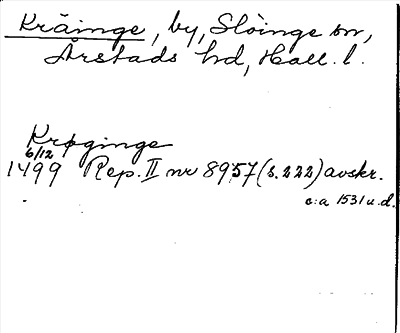 Kräinge, by, Slöinge sn,
Årstads hd, Hall. l.
Krøginge
6/12
1499 Rep. II nr 8957 (s. 222) avskr.
c:a 1531 u.d.